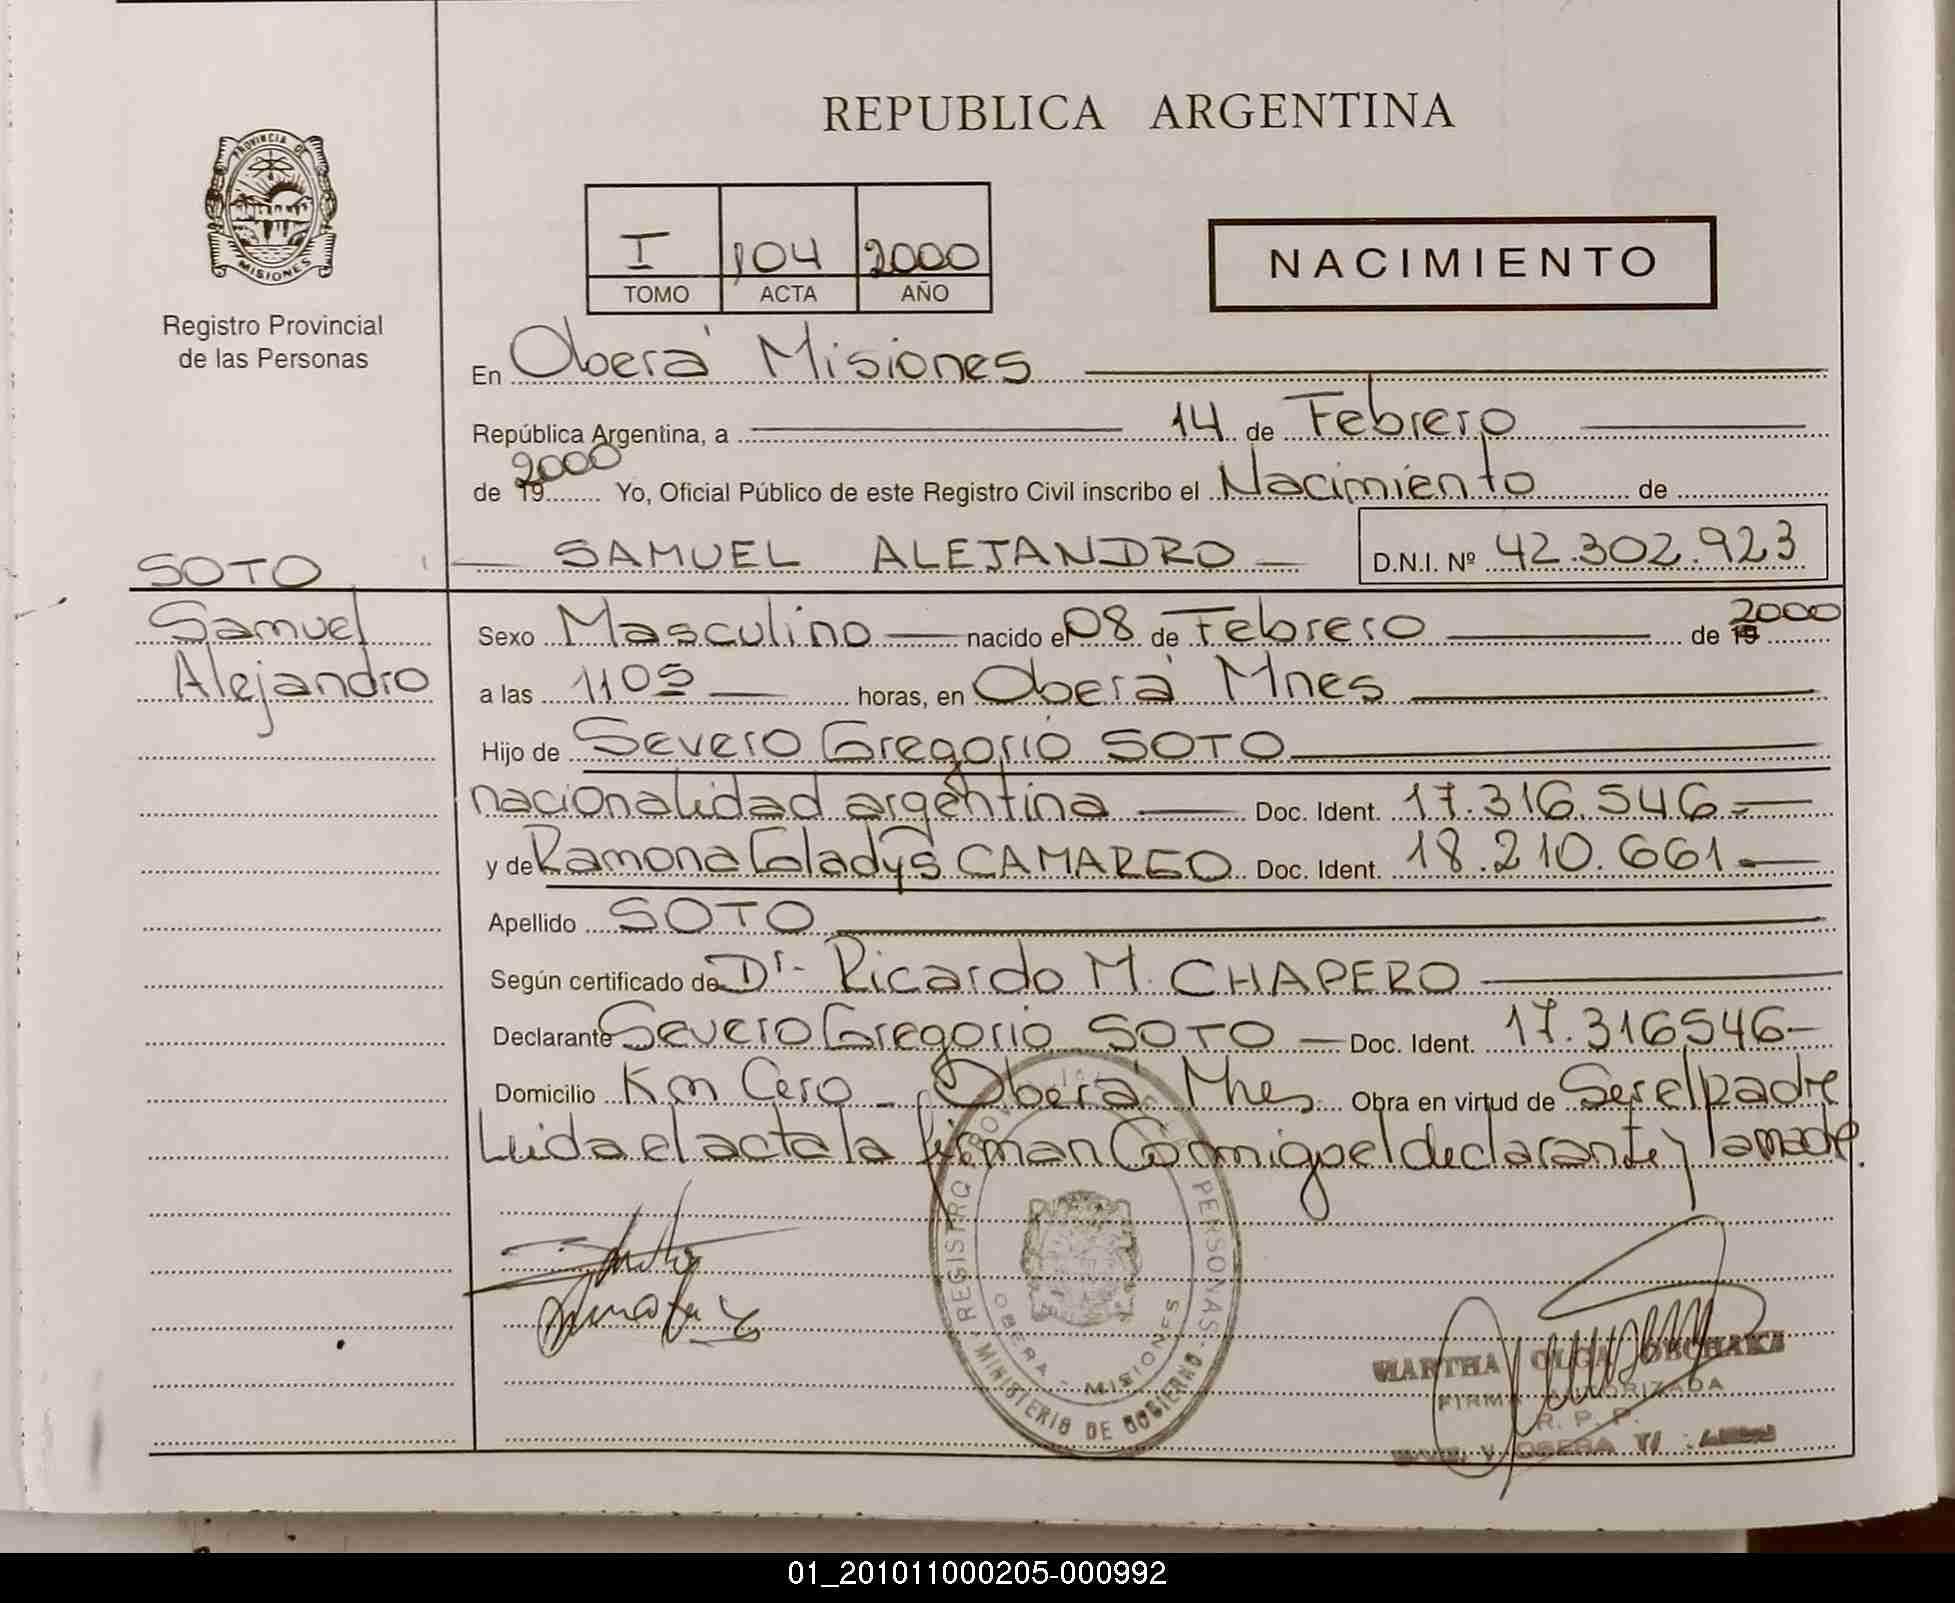 REPUBLICA ARGENTINA
PROVINCIA DE
MISIONES
Registro Provincial
de las Personas
I 104 2000
TOMO ACTA AÑO
NACIMIENTO
En Oberá Misiones
República Argentina, a 14 de Febrero
de 19 2000 Yo, Oficial Público de este Registro Civil inscribo el Nacimiento de
SAMUEL ALEJANDRO D.N.I. Nº 42.302.923
SOTO
Samuel
Alejandro
Sexo Masculino nacido el 08 de Febrero de 19 2000
a las 1105 horas, en Oberá Mnes
Hijo de Severo Gregorio SOTO
nacionalidad argentina Doc. Ident. 17.316.546.-
y de Ramona Gladys CAMARGO Doc. Ident. 18.210.661.-
Apellido SOTO
Según certificado de Dr. Ricardo M. CHAPERO
Declarante Severo Gregorio SOTO Doc. Ident. 17.316546-
Domicilio Km Cero - Oberá Mnes Obra en virtud de Ser el padre
Leida el acta la firman Conmigo el declarante y la madre.
REGISTRO PERSONAS
OBERA - MISIONES
MINISTERIO DE GOBIERNO
MARTHA OLGA
FIRMA AUTORIZADA
R. P. P.
OBERA
01_201011000205-000992